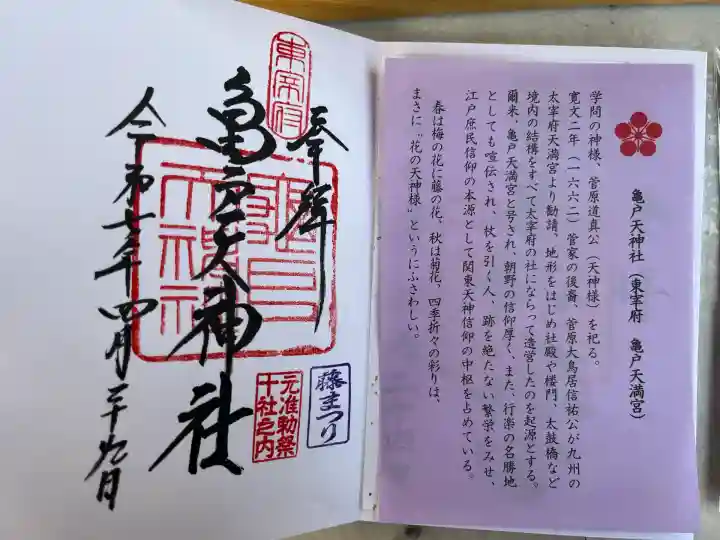 亀戸天神社(東宰府 亀戸天満宮)
学問の神様、菅原道真公(天神様)を祀る。
寛文二年(一六六二)菅家の後裔、菅原大鳥居信祐公が九州の
太宰府天満宮より勧請、地形をはじめ社殿や楼門、太鼓橋など
境内の結構をすべて太宰府の社にならって造営したのを起源とする。
爾来、亀戸天満宮と号され、朝野の信仰厚く、また、行楽の名勝地
としても喧伝され、杖を引く人、跡を絶たない繁栄をみせ、
江戸庶民信仰の本源として関東天神信仰の中枢を占めている。
春は梅の花に藤の花、秋は菊花、四季折々の彩りは、
まさに"花の天神様"というにふさわしい。
東宰府
奉拝
亀戸天神社
藤まつり
元准勅祭
十社之内
令和七年四月二十九日